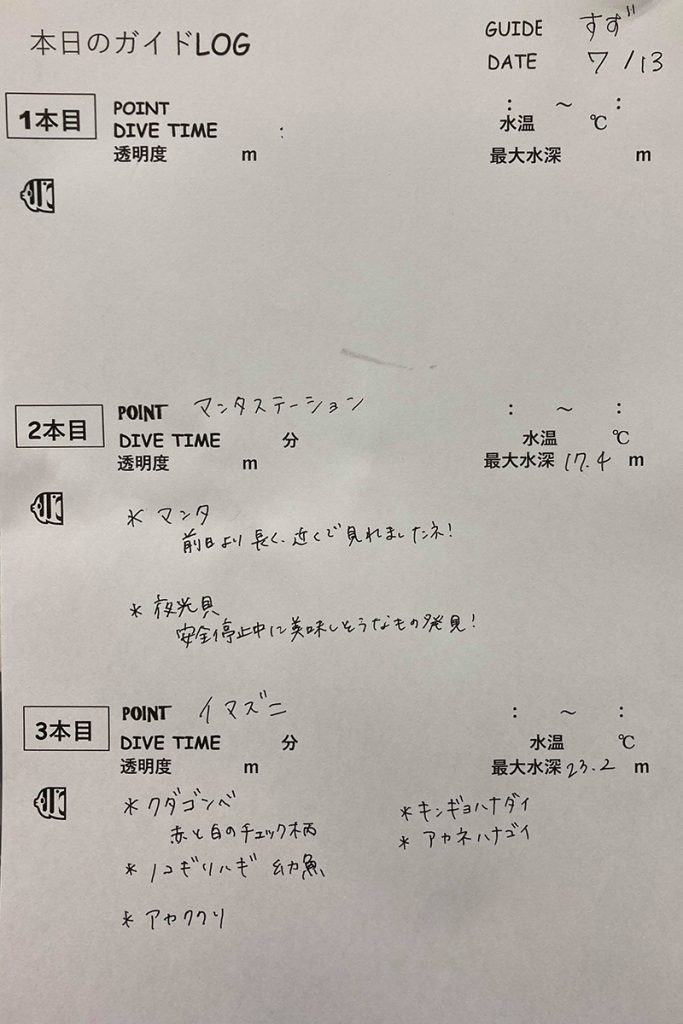 本日のガイドLOG
GUIDE すず"
DATE 7/13
1本目
POINT : ～ :
DIVE TIME : 水温 ℃
透明度 m 最大水深 m
2本目
POINT マンタステーション : ～ :
DIVE TIME 分 水温 ℃
透明度 m 最大水深 17.4 m
* マンタ
前日より長く、近くで見れましたネ!
* 夜光貝
安全停止中に美味しそうなもの発見!
3本目
POINT イマズニ : ～ :
DIVE TIME 分 水温 ℃
透明度 m 最大水深 23.2 m
* クダゴンベ
赤と白のチェック柄
* ノコギリハギ 幼魚
* アヤククリ
* キンギョハナダイ
* アカネハナゴイ